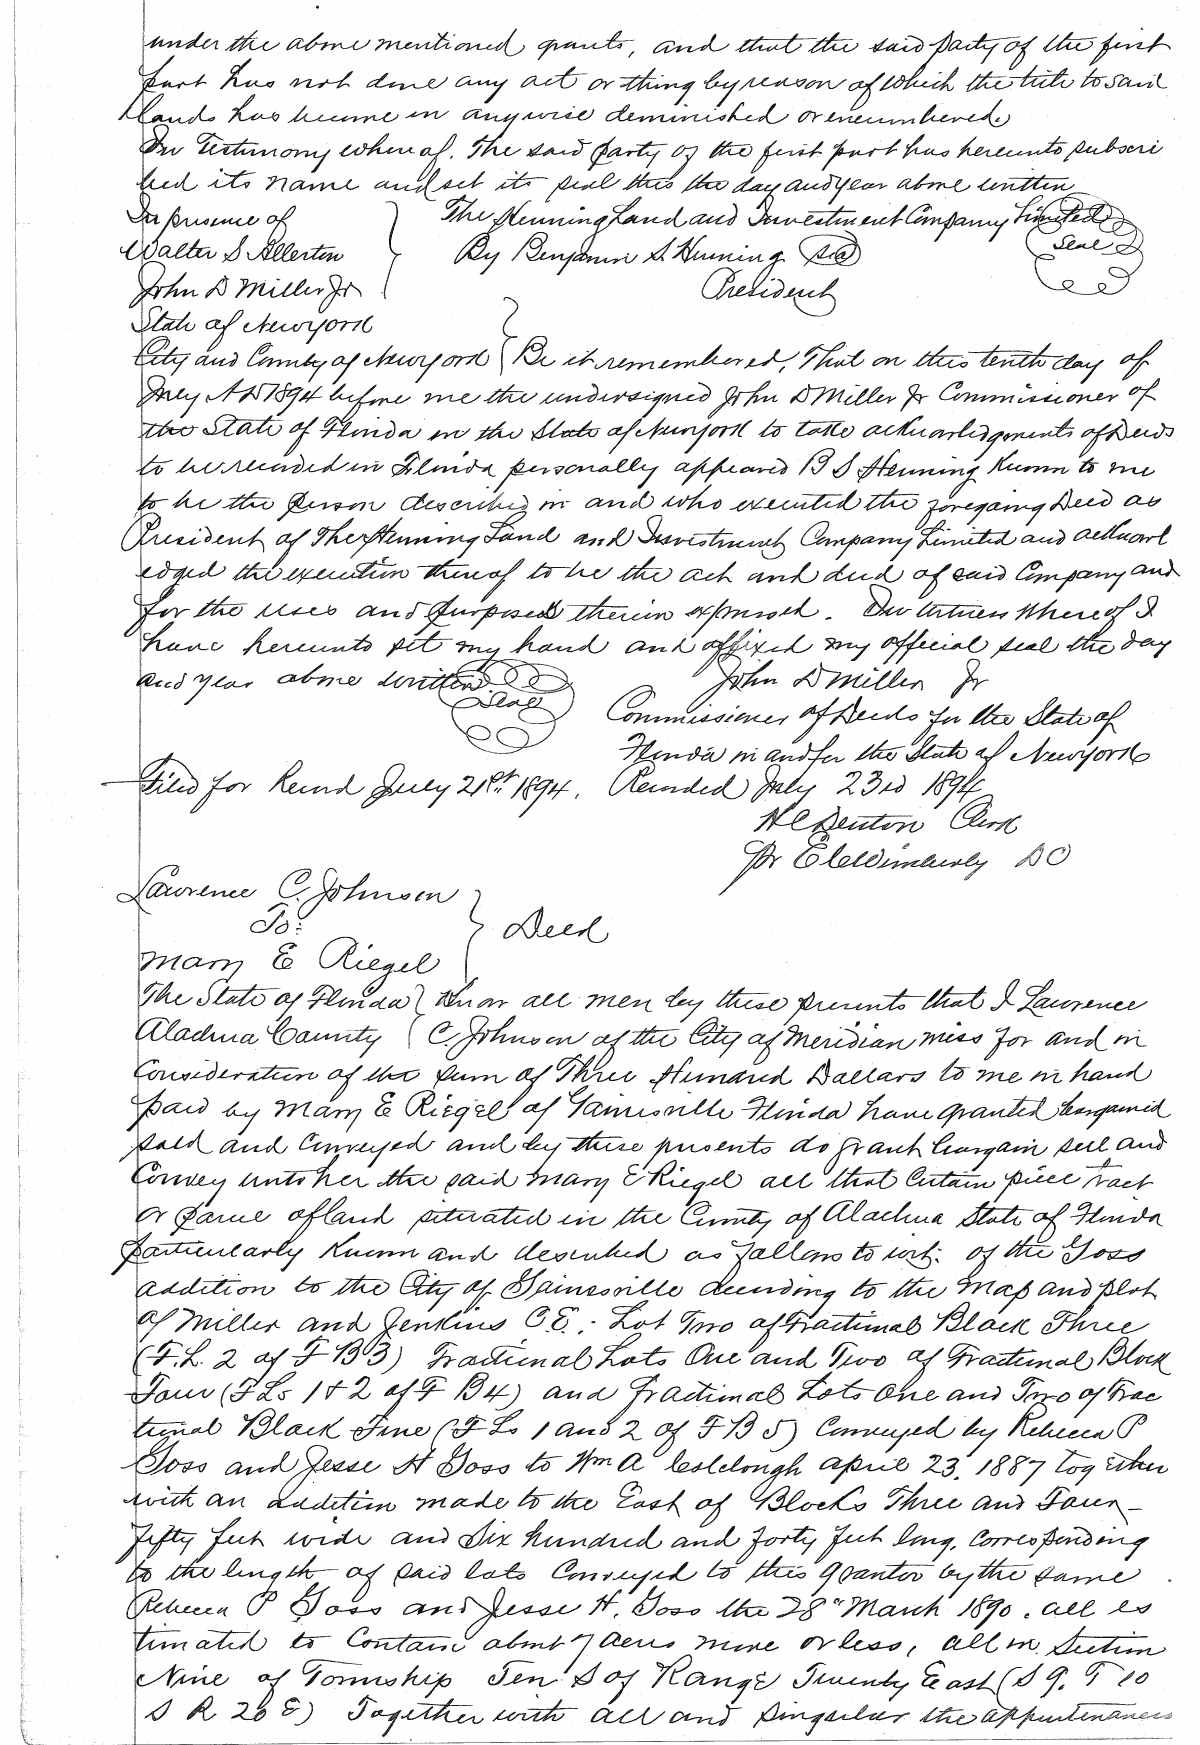 under the above mentioned grants, and that the said party of the first
part has not done any act or thing by reason of which the title to said
lands has become in anywise deminished or encumbered.
In Testimony whereof. The said party of the first part has hereunto subscri
bed its name and set its seal this the day and year above written
In presence of
Walter S Allerton
John D Miller Jr
The Henning Land and Investment Company Limited
By Benjamin S. Henning Seal
President
Seal
State of New york
City and County of New york Be it remembered, That on this tenth day of
July A D 1894 before me the undersigned John D Miller Jr Commissioner of
the State of Florida in the State of New york to take acknowledgments of Deeds
to be recorded in Florida personally appeared B S Henning Known to me
to be the person described in and who executed the foregoing Deed as
President of The Henning Land and Investment Company Limited and acknowl
edged the execution thereof to be the act and deed of said Company and
for the uses and purposes therein expressed. In witness Whereof I
have hereunto set my hand and affixed my official seal the day
and year above written
Seal
John D Miller Jr
Commissioner of Deeds for the State of
Florida in and for the State of New york
Filed for Record July 21st 1894. Recorded July 23rd 1894
H C Denton Clerk
Pr E C Wimberly D C
Lawrence C. Johnson
To:
Mary E Riegel
Deed
The State of Florida
Alachua County
Know all men by these presents that I Lawrence
C Johnson of the City of Meridian miss for and in
Consideration of the sum of Three Hundred Dollars to me in hand
paid by Mary E Riegel of Gainesville Florida have granted bargained
sold and Conveyed and by these presents do grant bargain sell and
Convey unto her the said Mary E Riegel all that Certain piece tract
or parcel of land situated in the County of Alachua State of Florida
particularly Known and described as follows to wit: of the Goss
addition to the City of Gainesville according to the Map and plot
of Miller and Jenkins C.E.: Lot Two of Fractional Block Three
(F.L. 2 of F B 3) Fractional Lots One and Two of Fractional Block
Four (F Ls 1 & 2 of F B 4) and fractional Lots One and Two of Frac
tional Block Five (F Ls 1 and 2 of F B 5) Conveyed by Rebecca P
Goss and Jesse H Goss to Wm A april 23, 1887 together
with an addition made to the East of Blocks Three and Four
fifty feet wide and six hundred and forty feet long, corresponding
to the length of said lots Conveyed to this grantor by the same
Rebecca P Goss and Jesse H. Goss the 28th March 1890. all es
timated to Contain about 7 acres more or less, all in Section
Nine of Township Ten S of Range Twenty East (S 9. T 10
S R 20 E) Together with all and singular the appurtenances